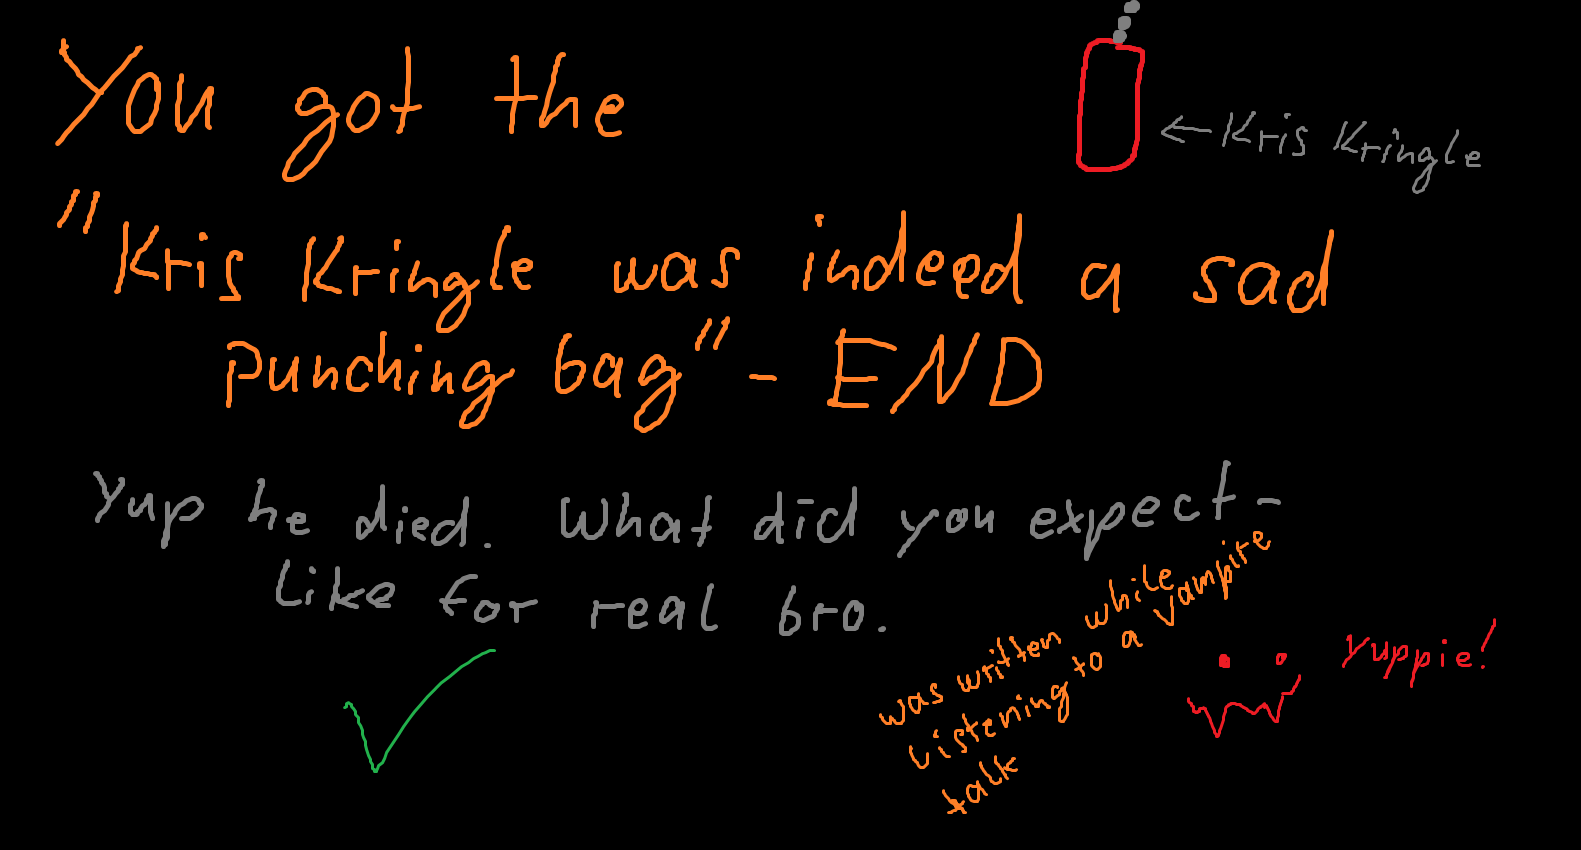 You got the
← Kris Kringle
"Kris Kringle was indeed a sad
punching bag" - END
Yup he died. What did you expect -
Like for real bro.
was written while
Listening to a vampire
talk
Yuppie!